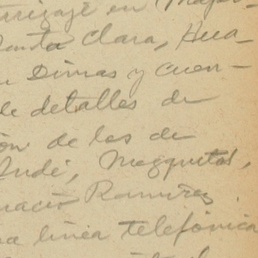 en
Santa Clara, Hua-
Dimas y cuen-
de detalles de
ón de los de
Indé, Mezquital,
nacio Ramirez
a línea telefónica